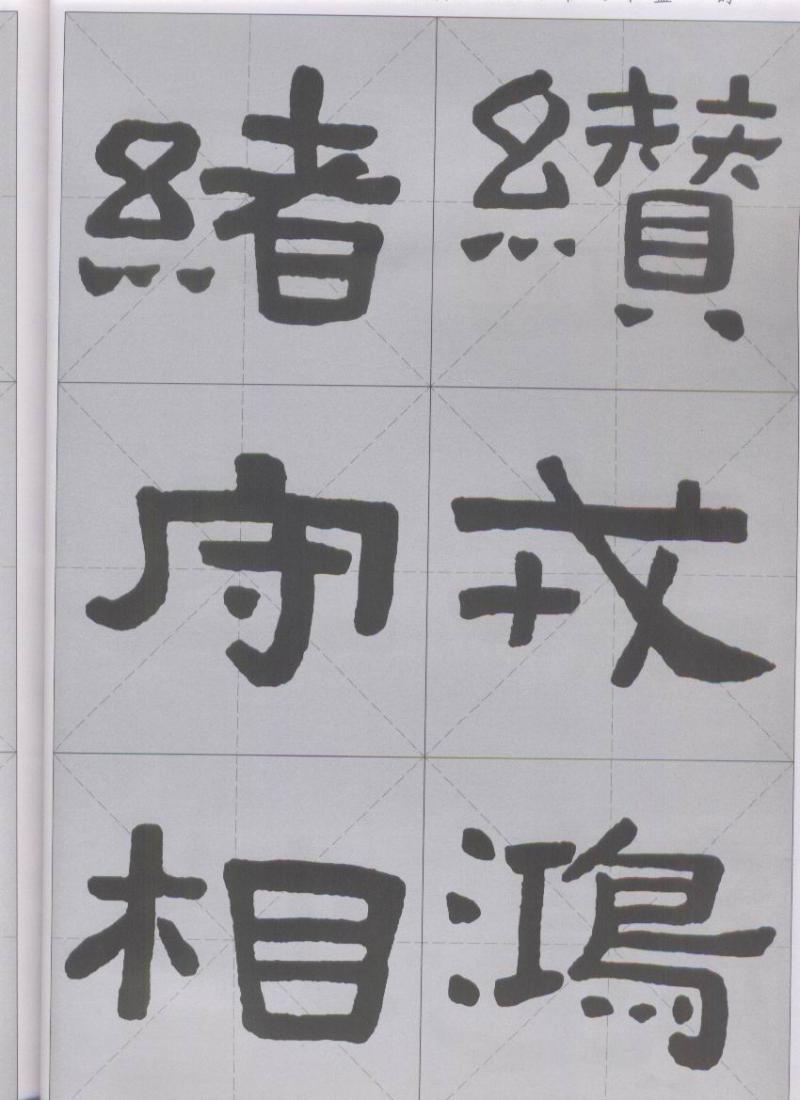 纉戎鴻
緒守相